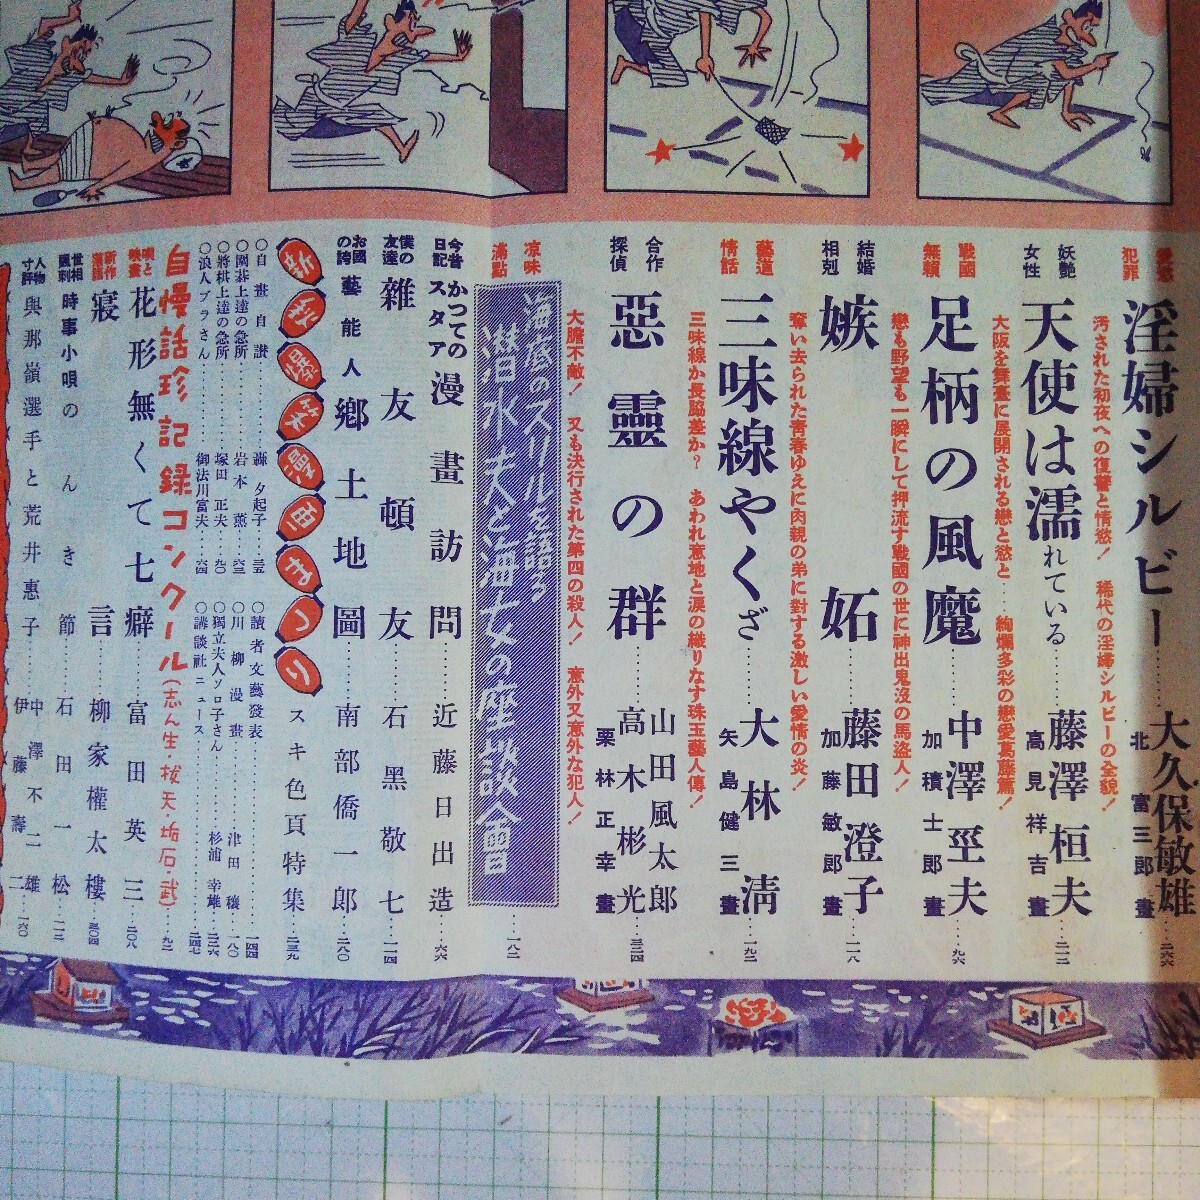 犯罪
淫婦シルビー……大久保敏雄
北富三郎畫…二六六
汚された初夜への復讐と情慾! 稀代の淫婦シルビーの全貌!
妖艶女性
天使は濡れている……藤澤桓夫
高見祥吉畫…二一二
大阪を舞臺に展開される戀と慾と…絢爛多彩の戀愛葛藤篇!
戰國無頼
足柄の風魔……中澤巠夫
加積士郎畫…九六
戀も野望も一瞬にして押流す戰國の世に神出鬼沒の馬盜人!
結婚相剋
嫉妬……藤田澄子
加藤敏郎畫…一一八
奪い去られた青春ゆえに肉親の弟に對する激しい愛情の炎!
藝道情話
三味線やくざ……大林清
矢島健三畫…一九二
三味線か長脇差か? あわれ意地と涙の織りなす珠玉藝人傳!
合作探偵
惡靈の群……山田風太郎
高木彬光
栗林正幸畫…三二四
大膽不敵! 又も決行された第四の殺人! 意外又意外な犯人!
涼味滿點
海底のスリルを語る
潜水夫と海女の座談会…一八二
今昔日記
かつてのスタア漫畫訪問……近藤日出造…六六
僕の友達
雜友頓友……石黑敬七…一一四
お國の誇
藝能人郷土地圖……南部僑一郎…二八〇
新版爆笑漫画まつり
スキ色頁特集…二三九
○自畫自讃……轟夕起子…三五
○圍碁上達の急所……岩本薫…六三
○將棋上達の急所……塚田正夫…九〇
○浪人ブラさん……御法川富夫…六四
○讀者文藝發表……一四四
○川柳漫畫……津田穰…一八〇
○獨立夫人ソロ子さん……杉浦幸雄…二三六
○講談社ニュース……二四七
自慢話珍記録コンクール(志ん生・拔天・垢石・武)…九二
唄と映畫
花形無くて七癖……富田英三…二〇八
新作落語
寢言……柳家權太樓…三〇四
世相諷刺
時事小唄のんき節……石田一松…二二二
人物寸評
與那嶺選手と荒井惠子……中澤不二雄
伊藤壽二…一六〇